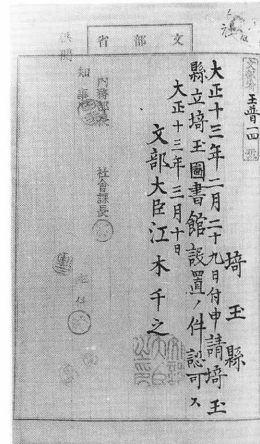 文部省
埼普一四號
埼玉縣
大正十三年二月二十九日付申請埼玉
縣立埼玉圖書館設置ノ件認可ス
大正十三年三月十日
文部大臣江木千之
内務部長
社會課長
知事
主任